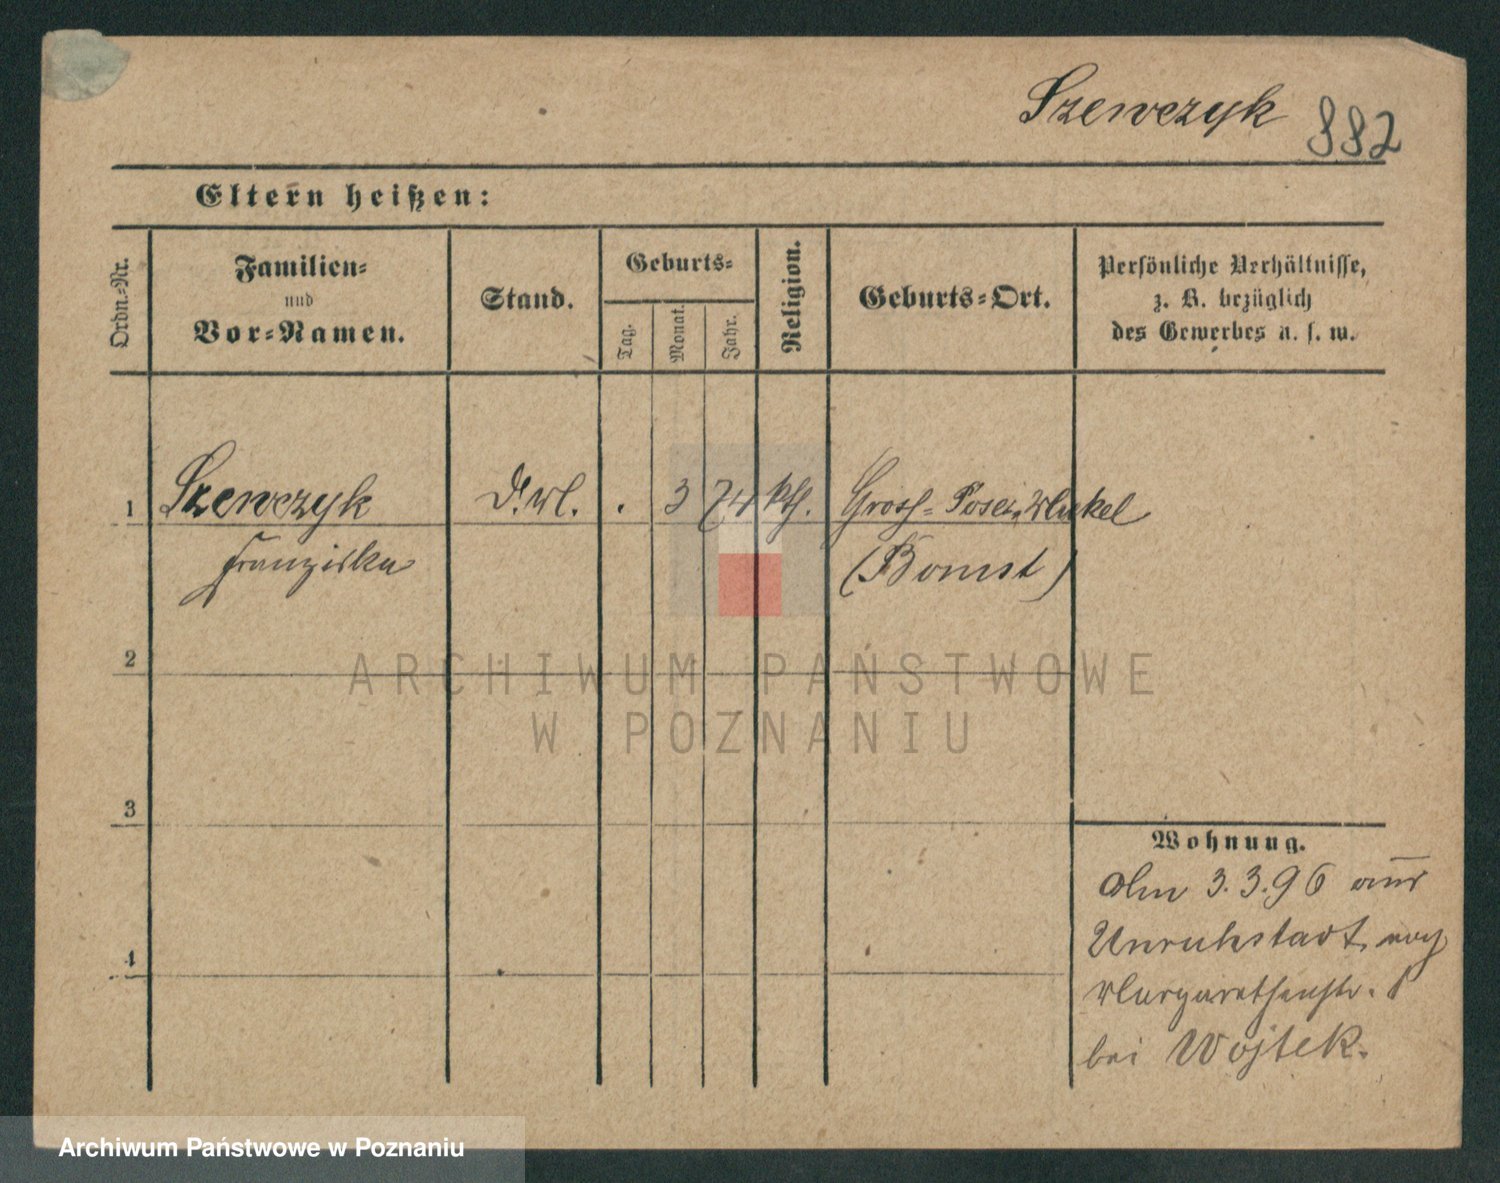 Szewczyk 882
Eltern heißen:
Ordn.-Nr.
Familien-
und
Vor-Namen.
Stand.
Geburts-
Tag.
Monat.
Jahr.
Religion.
Geburts-Ort.
Persönliche Verhältnisse,
z. B. bezüglich
des Gewerbes u. s. w.
1 Szewczyk 3 74 kth. Gross-
Franziska (Bomst)
2
ARCHIWUM PAŃSTWOWE
W POZNANIU
3
Wohnung.
Am 3.3.96 aus
Unruhstadt nach
Margarethenstr. 8
4
bei Wojtek.
Archiwum Państwowe w Poznaniu